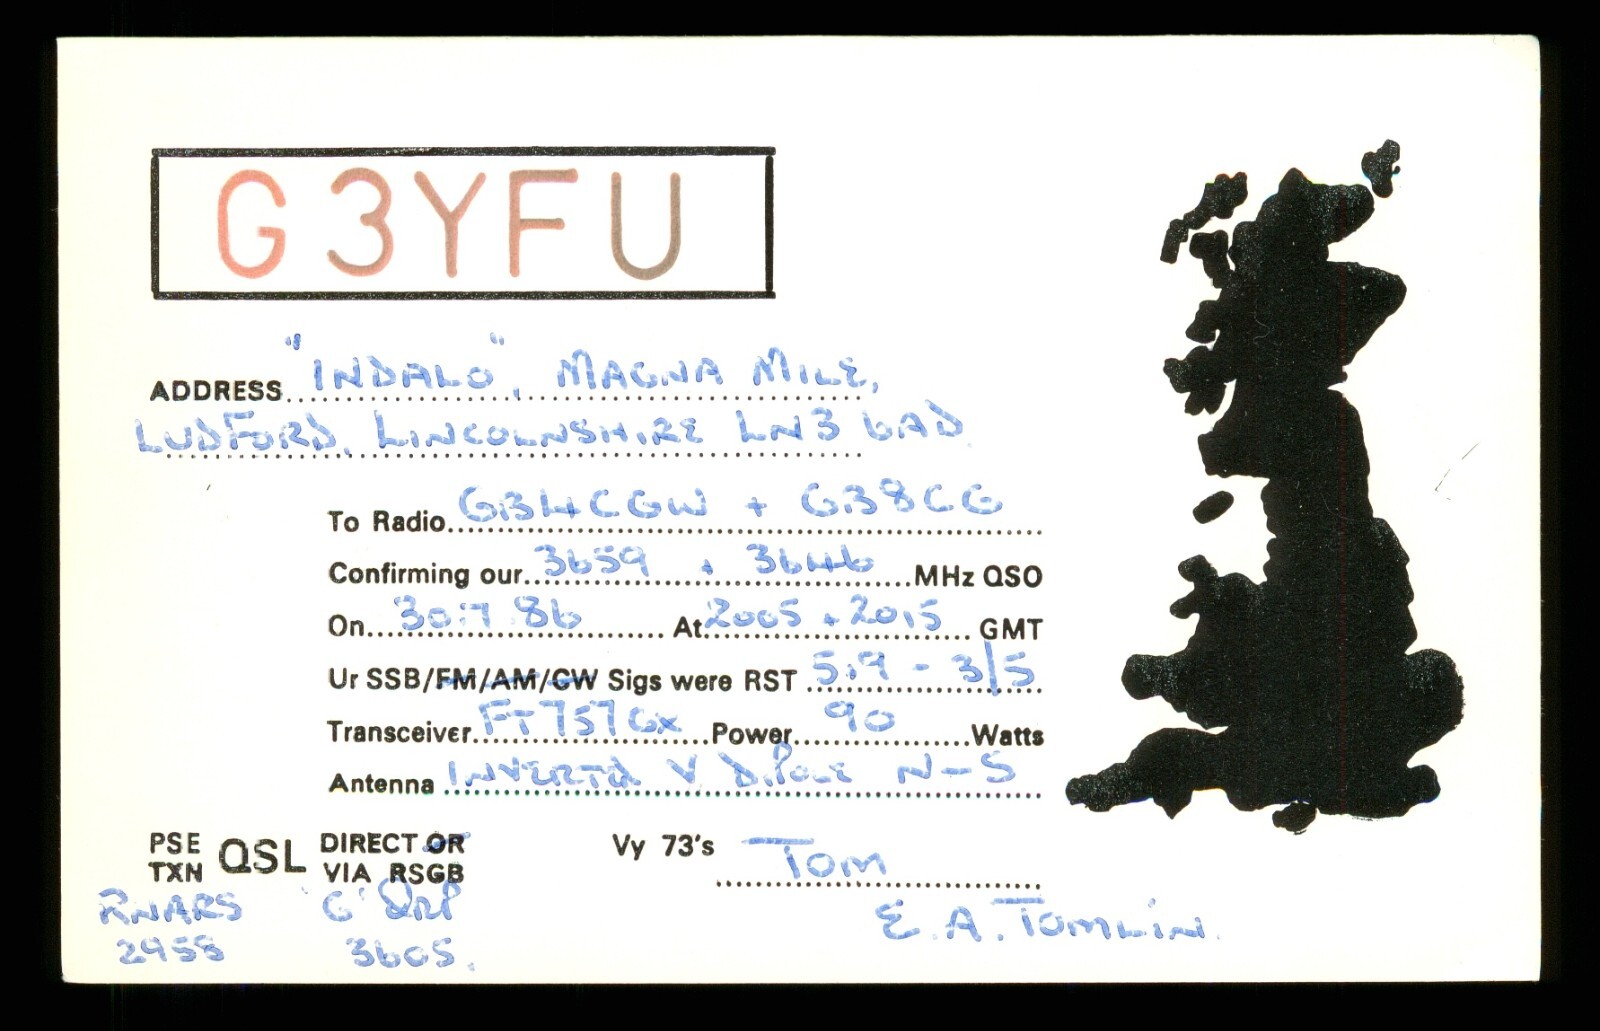 G3YFU
ADDRESS "INDALO", MAGNA MILE,
LUDFORD, LINCOLNSHIRE LN3 6AD
To Radio GB4CGW + GB8CG
Confirming our 3659 + 3646 MHz QSO
On 30.7.86 At 2005 + 2015 GMT
Ur SSB/FM/AM/CW Sigs were RST 5.9 - 3/5
Transceiver FT757GX Power 90 Watts
Antenna INVERTED V DIPOLE N-S
PSE QSL DIRECT OR Vy 73's Tom
TXN VIA RSGB
RNARS G QRP E.A. TOMLIN.
3605.